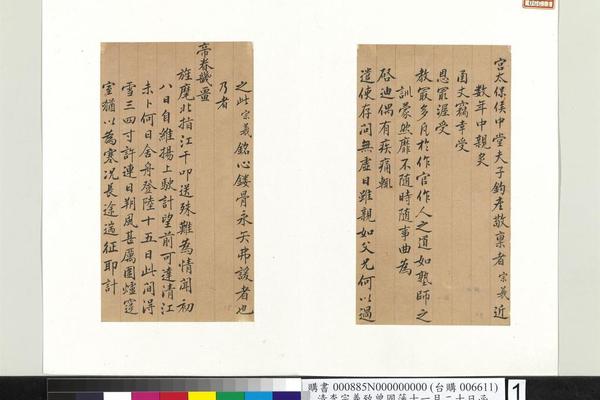 宫太保侯中堂夫子鈞座敬稟者宗羲近
數年中親炙
函丈竊幸受
恩罙渥受
教最多凡於作官作人之道如塾師之
訓蒙然靡不隨時隨事曲為
啓迪偶有疾痛輙
遣使存問無虛日雖親如父兄何以過
之此宗羲銘心鏤骨永矢弗諼者也
乃者
帝眷畿畺
旌麾北指江干叩送殊難為情聞初
八日自維揚上駛計望前可達清江
未卜何日舍舟登陸十五日此間得
雪三四寸許連日朔風甚厲圍爐窒
室猶以為寒况長途遄征耶計
購書 000885N000000000 (台購 006611)
清李宗羲致曾國藩十一月二十日函
1